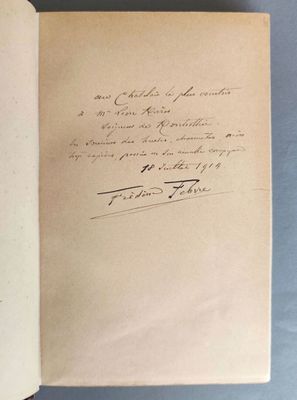 au Chatelain le plus courtois
à Mr Léon Kärs
Seigneur de
En souvenir des heures charmantes mais
trop rapides passées en son aimable compagnie
18 Juillet 1914
Frédéric Febvre